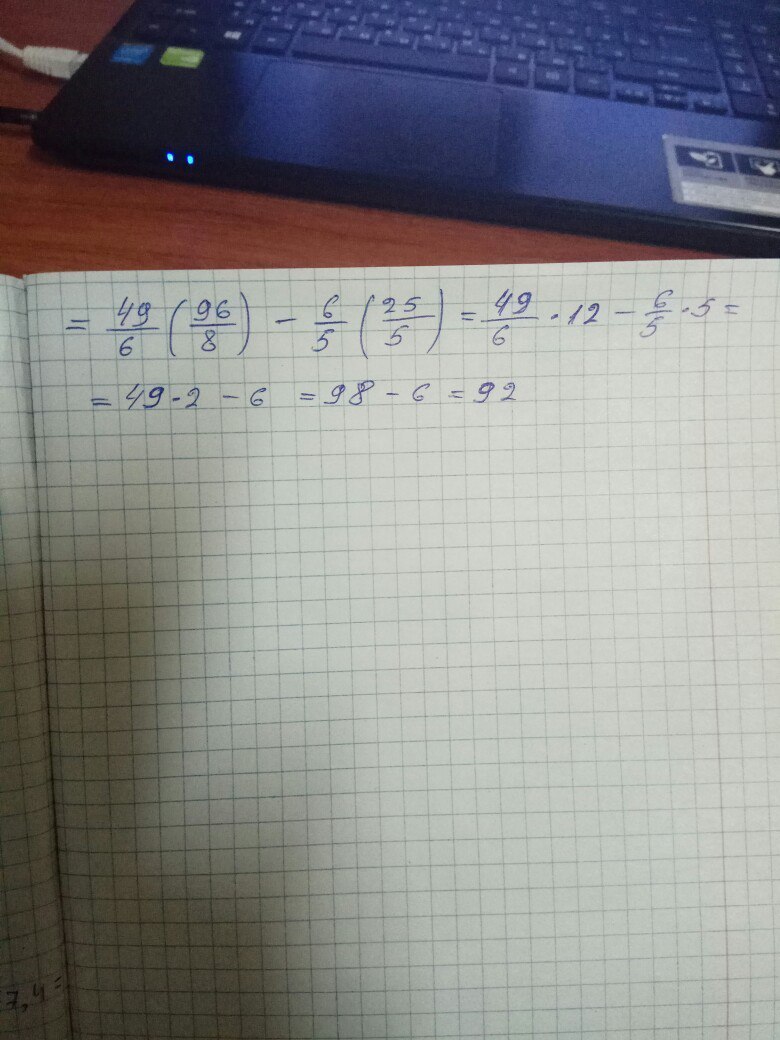 = 49/6 (96/8) - 6/5 (25/5) = 49/6 · 12 - 6/5 · 5 =
= 49 · 2 - 6 = 98 - 6 = 92
7,4 =